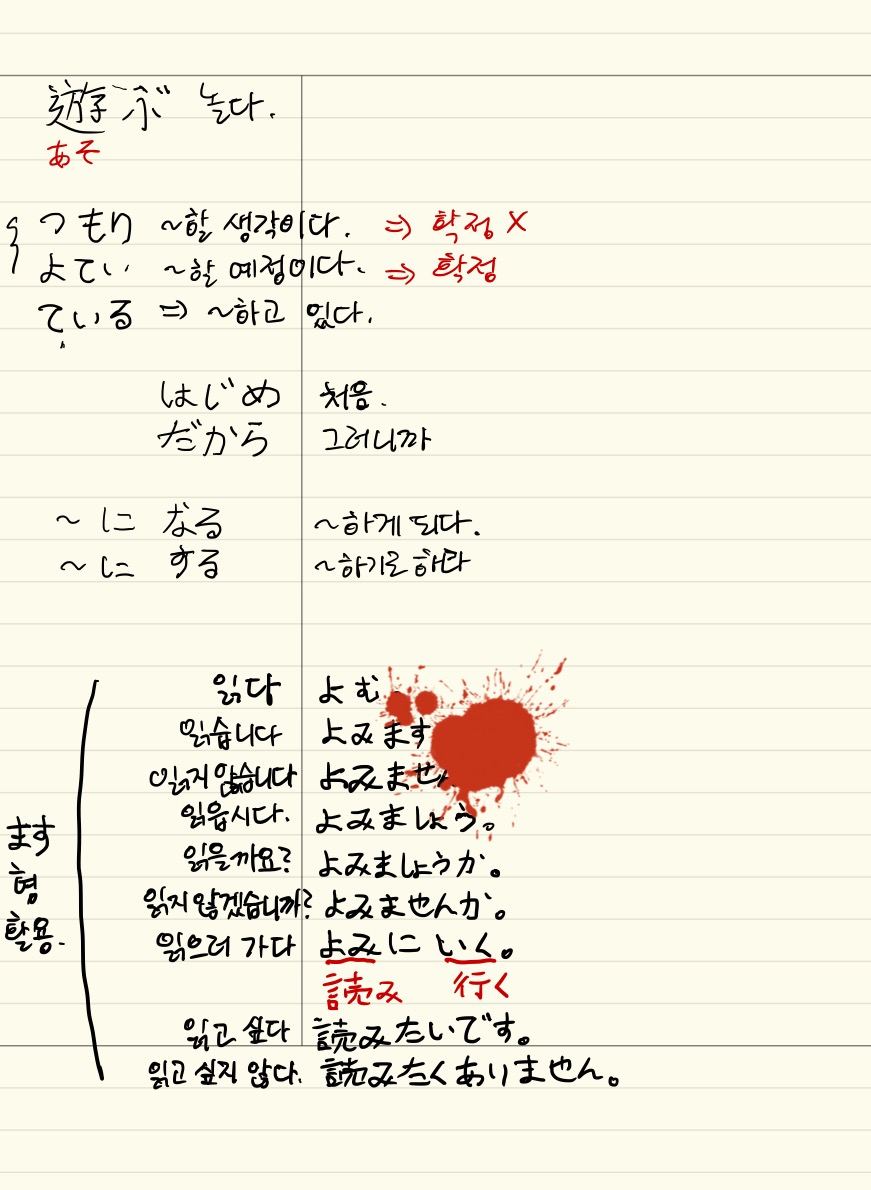 遊ぶ 놀다.
あそ
つもり ~할 생각이다. ⇒ 확정 X
よてい ~할 예정이다. ⇒ 확정
ている ⇒ ~하고 있다.
はじめ 처음.
だから 그러니까
~に なる ~하게 되다.
~に する ~하기로 하다
읽다 よむ
읽습니다 よみます
읽지 않습니다 よみませ
읽읍시다. よみましょう。
ます
형
활용.
읽을까요? よみましょうか。
읽지 않겠습니까? よみませんか。
읽으러 가다 よみに いく。
読み 行く
읽고 싶다 読みたいです。
읽고 싶지 않다. 読みたくありません。